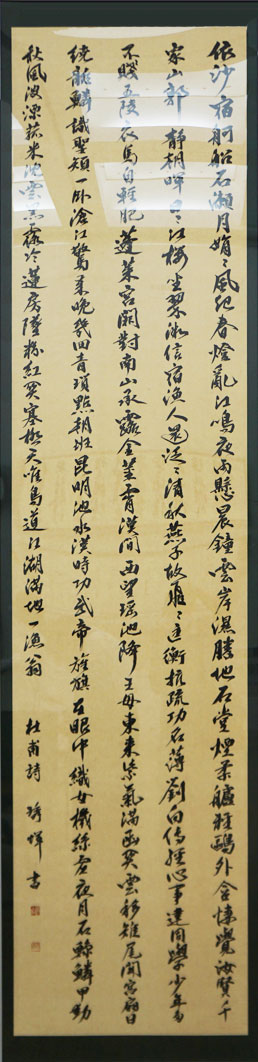 依沙宿舸船石瀨月娟〻風起春燈亂江鳴夜雨懸晨鐘雲岸濕勝地石堂煙柔艣輕鷗外含悽覺汝賢千
家山郭靜朝暉日〻江樓坐翠微信宿漁人還泛〻清秋燕子故飛〻匡衡抗疏功名薄劉向傳經心事違同學少年多
不賤五陵衣馬自輕肥蓬萊宮闕對南山承露金莖霄漢間西望瑤池降王母東來紫氣滿函關雲移雉尾開宮扇日
繞龍鱗識聖顏一臥滄江驚歲晚幾回青瑣點朝班昆明池水漢時功武帝旌旗在眼中織女機絲虛夜月石鯨鱗甲動
秋風波漂菰米沈雲黑露冷蓮房墜粉紅關塞極天唯鳥道江湖滿地一漁翁
杜甫詩 輝書